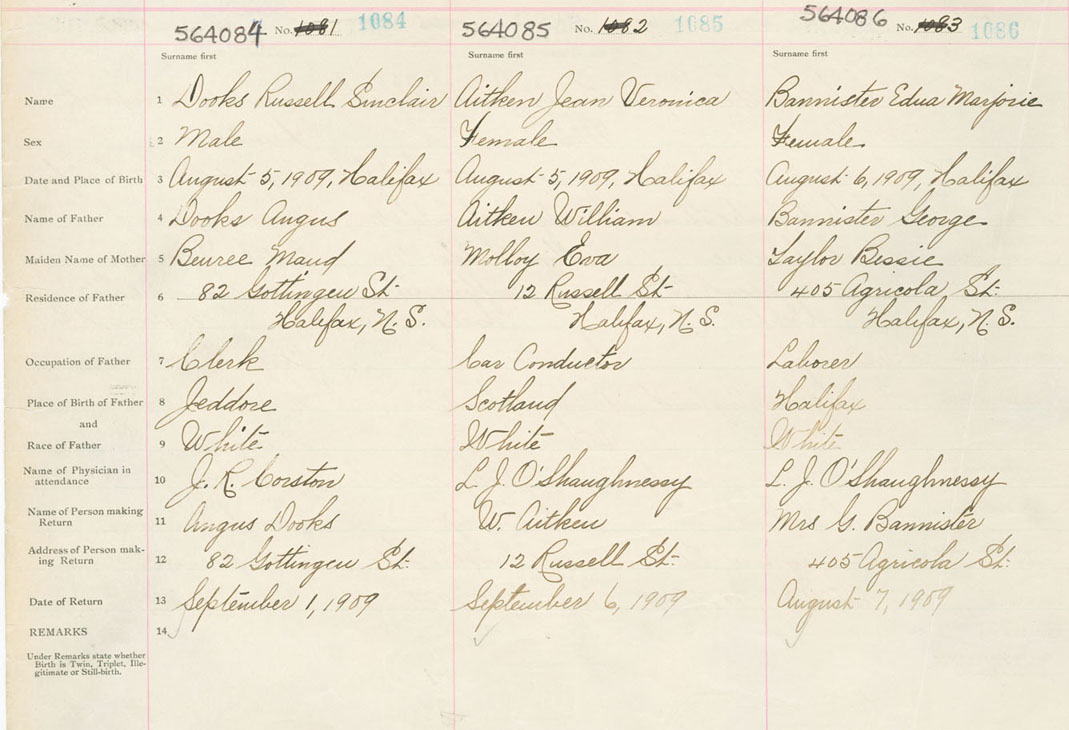 564084 No. 1081 1084 564085 No. 1082 1085 564086 No. 1083 1086
Surname first Surname first Surname first
Name 1 Dooks Russell Sinclair Aitken Jean Veronica Bannister Edna Marjorie
Sex 2 Male Female Female
Date and Place of Birth 3 August 5, 1909, Halifax August 5, 1909, Halifax August 6, 1909, Halifax
Name of Father 4 Dooks Angus Aitken William Bannister George
Maiden Name of Mother 5 Maud Molloy Eva Taylor Bessie
Residence of Father 6 82 Gottingen St. 12 Russell St. 405 Agricola St.
Halifax, N. S. Halifax, N. S. Halifax, N. S.
Occupation of Father 7 Clerk Car Conductor Laborer
Place of Birth of Father 8 Jeddore Scotland Halifax
and
Race of Father 9 White White White
Name of Physician in
attendance 10 J. R. Corston L. J. O'Shaughnessy L. J. O'Shaughnessy
Name of Person making
Return 11 Angus Dooks W. Aitken Mrs G. Bannister
Address of Person mak-
ing Return 12 82 Gottingen St. 12 Russell St. 405 Agricola St.
Date of Return 13 September 1, 1909 September 6, 1909 August 7, 1909
REMARKS 14
Under Remarks state whether
Birth is Twin, Triplet, Ille-
gitimate or Still-birth.